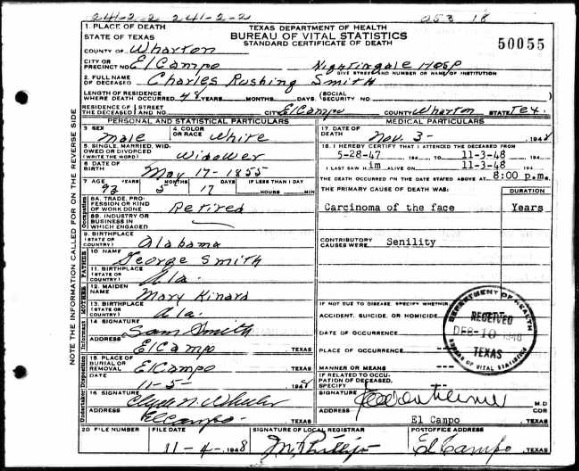 241-2-2 241-2-2 253 18
1. PLACE OF DEATH
STATE OF TEXAS
TEXAS DEPARTMENT OF HEALTH
BUREAU OF VITAL STATISTICS
STANDARD CERTIFICATE OF DEATH
50055
COUNTY OF Wharton
CITY OR PRECINCT NO. El Campo Nightingale Hosp
GIVE STREET AND NUMBER OR NAME OF INSTITUTION
2. FULL NAME OF DECEASED Charles Rushing Smith
LENGTH OF RESIDENCE WHERE DEATH OCCURRED 48 YEARS MONTHS DAYS (SOCIAL SECURITY NO.
RESIDENCE OF THE DECEASED STREET NO. CITY El Campo COUNTY Wharton STATE Tex.
PERSONAL AND STATISTICAL PARTICULARS
3. SEX Male 4. COLOR OR RACE White
5. SINGLE, MARRIED, WIDOWED OR DIVORCED (WRITE THE WORD) Widower
6. DATE OF BIRTH May 17-1855
7. AGE YEARS 93 MONTHS 5 DAYS 17 IF LESS THAN 1 DAY HOURS MIN
8A. TRADE, PROFESSION OR KIND OF WORK DONE Retired
8B. INDUSTRY OR BUSINESS IN WHICH ENGAGED
9. BIRTHPLACE (STATE OR COUNTRY) Alabama
FATHER
10. NAME George Smith
11. BIRTHPLACE (STATE OR COUNTRY) Ala.
MOTHER
12. MAIDEN NAME Mary Kinard
13. BIRTHPLACE (STATE OR COUNTRY) Ala.
14. SIGNATURE Sam Smith
ADDRESS El Campo TEXAS
15. PLACE OF BURIAL OR REMOVAL El Campo TEXAS
DATE 11-5- 1948
16. SIGNATURE Clyde N. Wheeler
ADDRESS El Campo TEXAS
MEDICAL PARTICULARS
17. DATE OF DEATH Nov. 3- 1948
18. I HEREBY CERTIFY THAT I ATTENDED THE DECEASED FROM
5-28-47 194 TO 11-3-48 194
I LAST SAW H im ALIVE ON 11-3-48 194
THE DEATH OCCURRED ON THE DATE STATED ABOVE AT 8:00 p.m.
THE PRIMARY CAUSE OF DEATH WAS: DURATION
Carcinoma of the face Years
CONTRIBUTORY CAUSES WERE: Senility
IF NOT DUE TO DISEASE, SPECIFY WHETHER:
ACCIDENT, SUICIDE, OR HOMICIDE
DATE OF OCCURRENCE
PLACE OF OCCURRENCE
MANNER OR MEANS
IF RELATED TO OCCUPATION OF DECEASED, SPECIFY
SIGNATURE M.D.
ADDRESS El Campo TEXAS
DEPARTMENT OF HEALTH
RECEIVED
DEC 10 1948
TEXAS
BUREAU OF VITAL STATISTICS
20. FILE NUMBER FILE DATE SIGNATURE OF LOCAL REGISTRAR POSTOFFICE ADDRESS
11-4-1948 El Campo TEXAS
NOTE THE INFORMATION CALLED FOR ON THE REVERSE SIDE